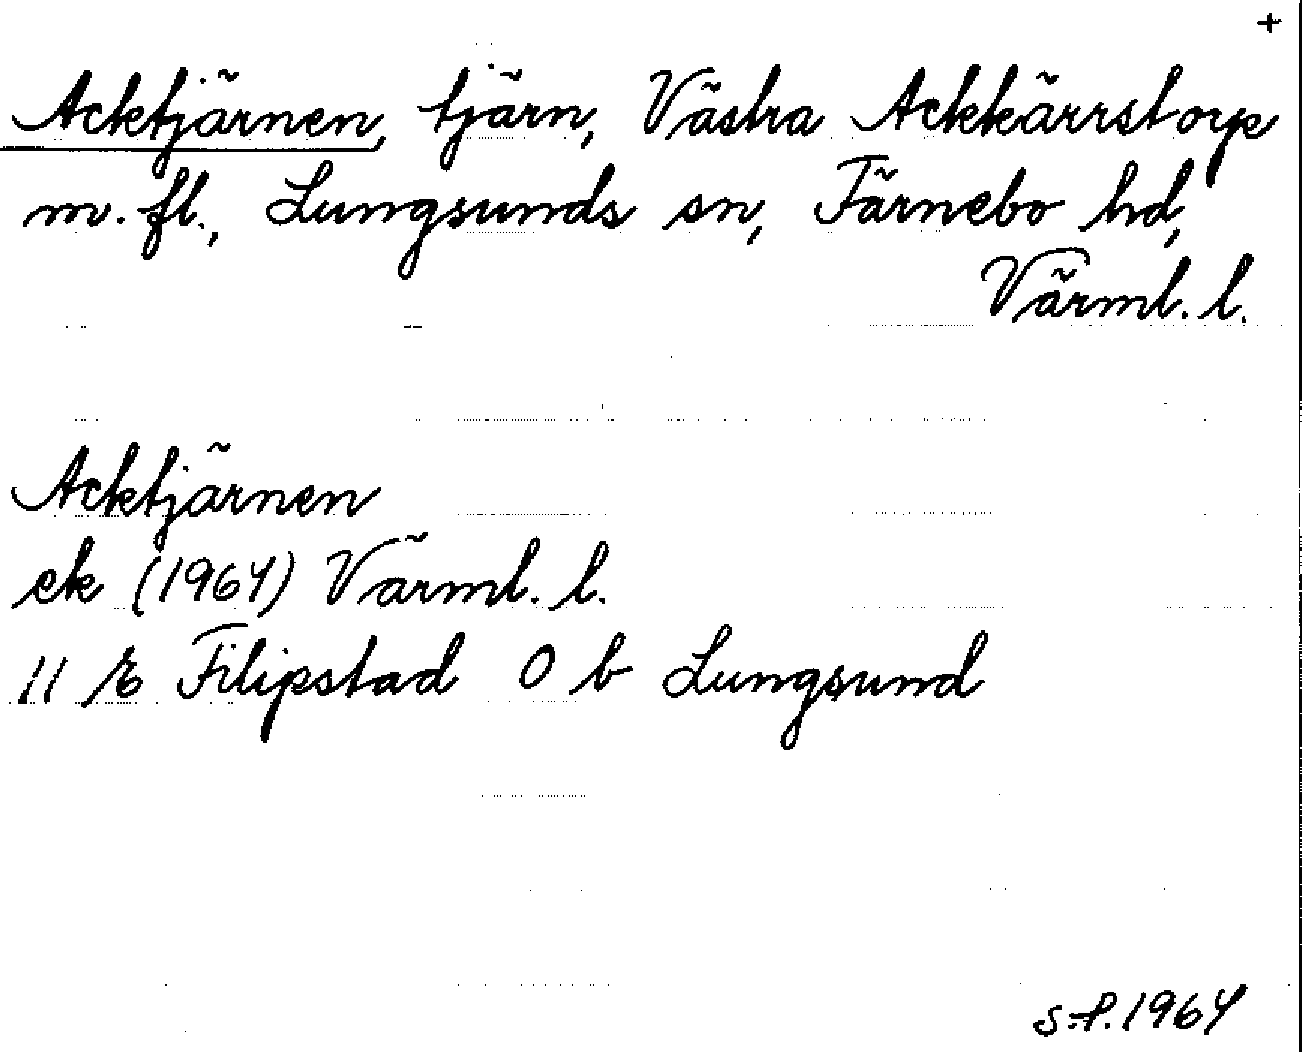 +
Acktjärnen, tjärn, Västra Ackkärrstorp
m. fl., Lungsunds sn, Färnebo hd,
Värml. l.
Acktjärnen
ek (1964) Värml. l.
11 E Filipstad O b Lungsund
1964